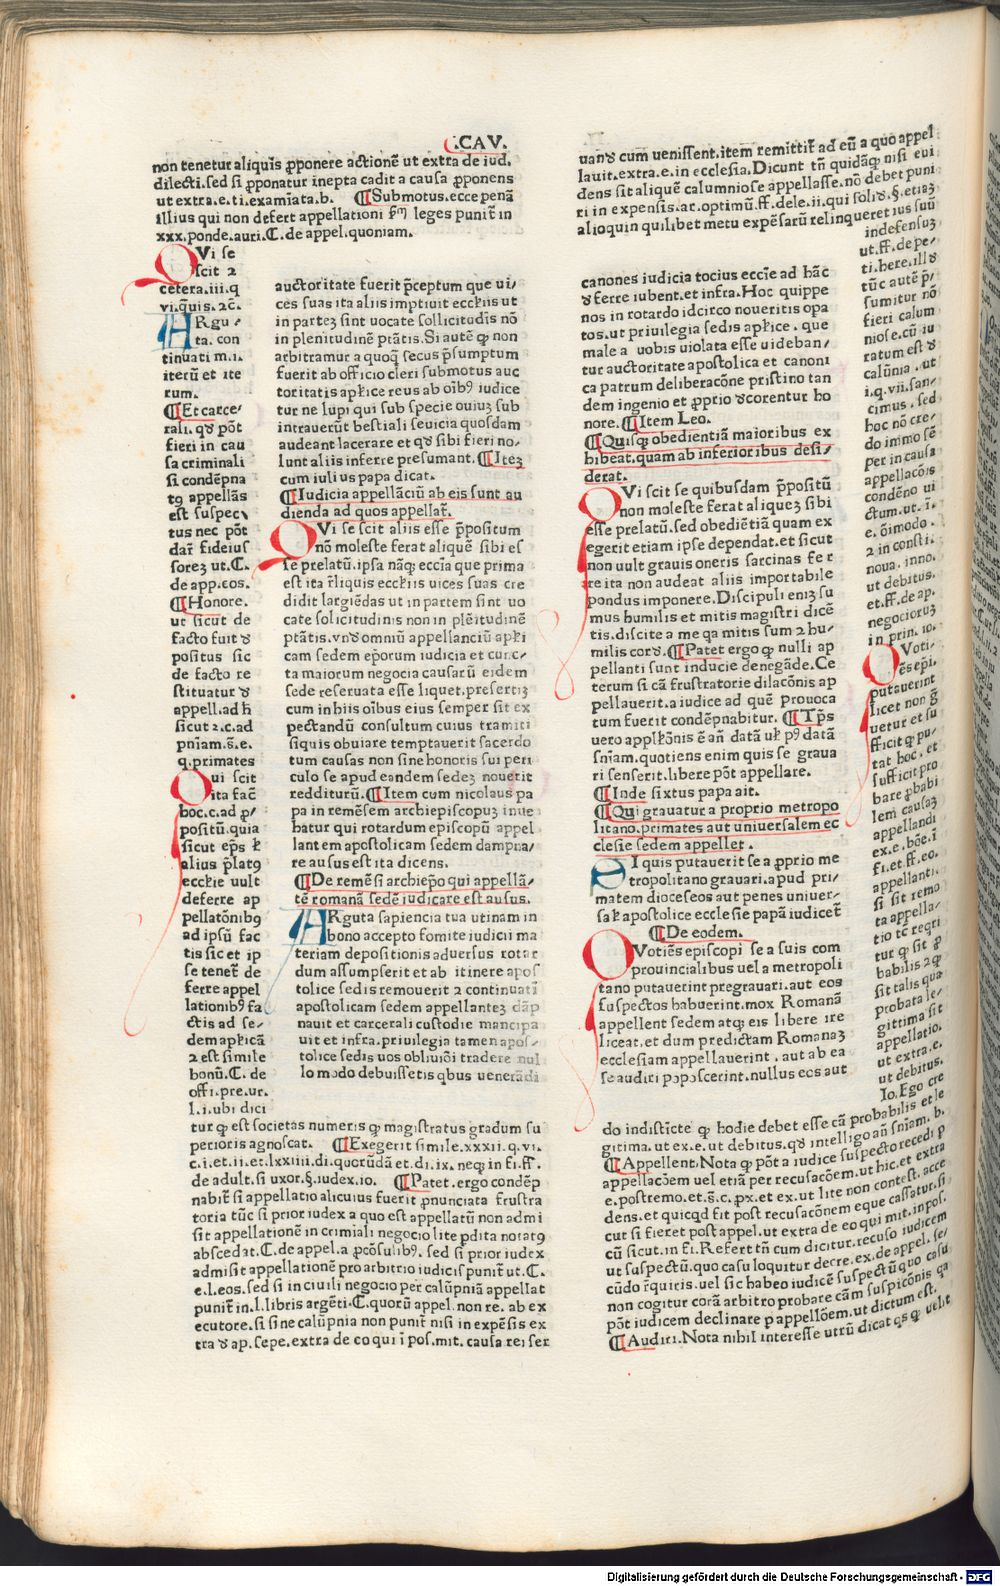 .CAV.
non tenetur aliquis ꝓponere actionē ut extra de iud.
dilecti.sed si ꝓponatur inepta cadit a causa ꝓponens
ut extra.e.ti.examīata.b. ¶Submotus.ecce penā
illius qui non defert appellationi leges punit̄ in
xxx.ponde.auri.C.de appel.quoniam.
QVi se
scit ⁊
cetera.iii.q
vi.q̄uis.⁊c̄.
ARgu-
ta. con
tinuati m.i.
iterū et ite
rum.
¶Et carce-
rali. qđ pōt
fieri in cau
sa criminali
si condēpna
tꝰ appellās
est suspec-
tus nec pōt
dar̄ fideius
sorez ut.C.
de app.eos.
¶Honore.
ut sicut de
facto fuit đ
positus sic
de facto re
stituatur đ
appell.ad h̄
sicut ⁊.c.ad
pnīam.s̄.e.
q.primates
Qui scit
ita fac̄
hoc.c.ad p̄-
positū.quia
sicut ep̄s ł
alius p̄latꝰ
eccłie uult
deferre ap
pellatōnibꝰ
ad ipsū fac
tis sic et ip
se tenet̄ de
ferre appel
lationibꝰ fa-
ctis ad se-
dem apłicā
⁊ est simile
bonū.C. de
offi.pre.ur.
l.i.ubi dici
auctoritate fuerit p̄ceptum que ui-
ces suas ita aliis imptiuit eccłiis ut
in partez sint uocate sollicitudis nō
in plenitudinē ptātis.Si autē ꝙ non
arbitramur a quoꝗ secus p̄sumptum
fuerit ab officio cleri submotus auc
toritatis apłice reus ab oībꝰ iudice
tur ne lupi qui sub specie ouiuz sub
intrauerūt bestiali seuicia quosdam
audeant lacerare et qđ sibi fieri no-
lunt aliis inferre presumant.¶Itez
cum iulius papa dicat.
¶Iudicia appellāciū ab eis sunt au
dienda ad quos appellat̄.
QVi se scit aliis esse p̄positum
nō moleste ferat aliquē sibi es
se prelatū.ipsa nāꝗ eccīa que prima
est ita r̄liquis eccłiis uices suas cre
didit largiēdas ut in partem sint uo
cate solicitudinis non in plēitudinē
ptātis.vnđ omniū appellanciū apłi
cam sedem ep̄orum iudicia et cunc-
ta maiorum negocia causarū eidem
sede reseruata esse liquet.presertiz
cum in hiis oībus eius semper sit ex
pectandū consultum cuius tramiti
siquis obuiare temptauerit sacerdo
tum causas non sine honoris sui peri
culo se apud eandem sedez nouerit
redditurū.¶Item cum nicolaus pa
pa in remēsem archiepiscopuz inue
hatur qui rotardum episcopū appel
lantem apostolicam sedem dampna-
re ausus est ita dicens.
¶De remēsi archiep̄o qui appellā-
tē romanā sedē iudicare est ausus.
ARguta sapiencia tua utinam in
bono accepto fomite iudicii ma
teriam depositionis aduersus rotar
dum assumpserit et ab itinere apos
tolice sedis remouerit ⁊ continuati
apostolicam sedem appellantez dāp
nauit et carcerali custodie mancipa
uit et infra.priuilegia tamen apos-
tolice sedis uos obliuiōi tradere nul
lo modo debuissetis qbus uenerādi
tur ꝙ est societas numeris ꝙ magistratus gradum su
perioris agnoscat. ¶Exegerit simile.xxxii.q.vi.
c.i.et.ii.et.lxxiiii.di.quorūdā et.di.ix.neqꝫ in fi.ff.
de adult.si uxor.§.iudex.io. ¶Patet.ergo condēp
nabit̄ si appellatio alicuius fuerit ꝓnunciata frustra
toria tūc si prior iudex a quo est appellatū non admi
sit appellationē in crimiali negocio lite pdita notatꝰ
abscedat.C.de appel.a ꝓcōsulibꝰ. sed si prior iudex
admisit appellationē pro arbitrio iudicis punit̄ ut.C.
e.l.eos.sed si in ciuili negocio per calūpniā appellat
punit̄ in.l.libris argēti.C.quorū appel.non re. ab ex
ecutore.si sine calūpnia non punit̄ nisi in expēsis ex
tra đ ap.sepe.extra de eo qui ī pos.mit.causa rei ser
uanđ cum uenissent.item remittit̄ ad eū a quo appel
lauit.extra.e.in ecclesia.Dicunt tn̄ quidāꝙ nisi eui
dens sit aliquē calumniose appellasse.nō debet puni
ri in expensis.ar.optimū.ff.dele.ii.qui solid.§.etiaz
alioquin quilibet metu expēsarū relinqueret ius suū
indefensuz
ut.ff.de pe-
ti.here.ill đ
tūc autē p̄-
sumitur nō
fieri calum
niose.cū iu
ratum est đ
calūnia .ut
i.q.vii.san-
cimus . sed
hoc nō cre-
do immo sē
per in causa
appellacōis
condēno ui
ctum.ut. i.
e. ōimodo .
⁊ in consti.
noua. inno.
ut debitus.
et.ff.de ap.
negocioruz
in prin. io.
QVoti-
ēs epi.
putauerint
licet non ḡ
uetur et su
fficit ꝙ pu-
tat hoc. et
sufficit pro
bare ꝓbabi
lem causaz
appellandi
ex.e.bōe.ī
fi.et.ff.eo.
appellanti.
si sit remo
ta appella-
tio tc̄ reqri
tur ꝙ sit ꝓ
babilis ⁊ ꝙ
sit talis qua
probata le-
gittima sit
appellatio.
ut extra.e.
ut debitus.
Io. Ego cre
canones iudicia tocius eccīe ad hāc
đferre iubent.et infra.Hoc quippe
nos in rotardo idcirco noueritis opa
tos.ut priuilegia sedis apłice . que
male a uobis uiolata esse uideban-
tur auctoritate apostolica et canoni
ca patrum deliberacōne pristino tan
dem ingenio et ꝓprio đcorentur ho
nore.¶Item Leo.
¶Quisꝗ obedientiā maioribus ex
hibeat.quam ab inferioribus desi-
derat.
QVi scit se quibusdam p̄positū
non moleste ferat aliquez sibi
esse prelatū.sed obediētiā quam ex
egerit etiam ipse dependat.et sicut
non uult grauis oneris sarcinas fer
re ita non audeat aliis importabile
pondus imponere.Discipuli eniz su
mus humilis et mitis magistri dicē
tis.discite a me qa mitis sum ⁊ hu-
milis corđ.¶Patet ergo ꝙ nulli ap
pellanti sunt inducie denegāde.Ce
terum si cā frustratorie dilacōnis ap
pellauerit.a iudice ad quē prouoca
tum fuerit condēpnabitur. ¶Tp̄s
uero appłłōnis ē an̄ datā uł pꝰ datā
sn̄iam.quotiens enim quis se graua
ri senserit.libere pōt appellare.
¶Inde sixtus papa ait.
¶Qui grauatur a proprio metropo
litano.primates aut uniuersalem ec
clesie sedem appellet .
SI quis putauerit se a ꝓprio me
tropolitano grauari.apud pri-
matem dioceseos aut penes uniuer-
salē apostolice ecclesie papā iudicet̄
¶De eodem.
QVotiēs episcopi se a suis com
prouincialibus uel a metropoli
tano putauerint pregrauari.aut eos
suspectos habuerint.mox Romanā
appellent sedem atqꝫ eis libere ire
liceat.et dum predictam Romanaz
ecclesiam appellauerint . aut ab ea
se audiri poposcerint.nullus eos aut
do indistīcte ꝙ hodie debet esse cā probabilis et le
gitima.ut ex.e.ut debitus.qđ intelligo an̄ sn̄iam. b.
¶Appellent.Nota ꝙ pōt a iudice suspecto recedi ꝑ
appellacōem uel etiā per recusacōem.ut hic.et extra
e.postremo.et.s̄.c.px.et ex.ut lite non contest.acce
dens.et quicqđ fit post recusacōnem eque cassatur.si
cut si fieret post appel.ut extra de eo qui mit.in pos.
cū sicut.in fi.Refert tn̄ cum dicitur.recuso iudicem
ut suspectū.quo casu loquitur decre.ex.de appel.se-
cūdo r̄quiris.uel sic habeo iudicē suspectū quo casu
non cogitur corā arbitro probare cām suspiciōnis qa
pōt iudicem declinare ꝑ appellōem.ut dictum est.
¶Audiri.Nota nihil interesse utrū dicat qs ꝙ uelit
Digitalisierung gefördert durch die Deutsche Forschungsgemeinschaft - DFG